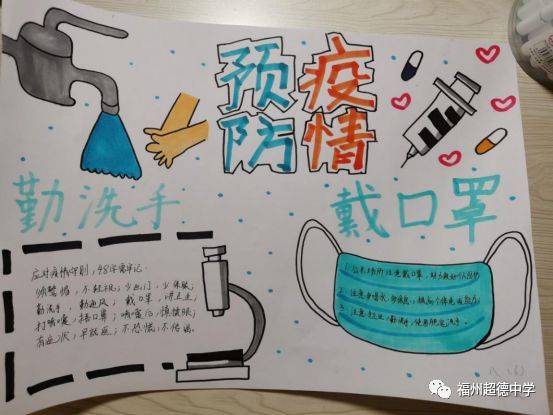 预防疫情
勤洗手
戴口罩
应对疫情守则，48字需牢记
少出门；少串服；
勤洗手，勤通风；戴口罩，讲卫生；
打喷嚏，捂口鼻；喷嚏后，慎揉眼；
有症状，早就医；不恐慌，不传谣。
1. 公共场所注意戴口罩，
2. 注意多喝水，多休息，提高个体免疫能力。
3. 注意卫生，勤洗手，使用肥皂洗手。
福州超德中学